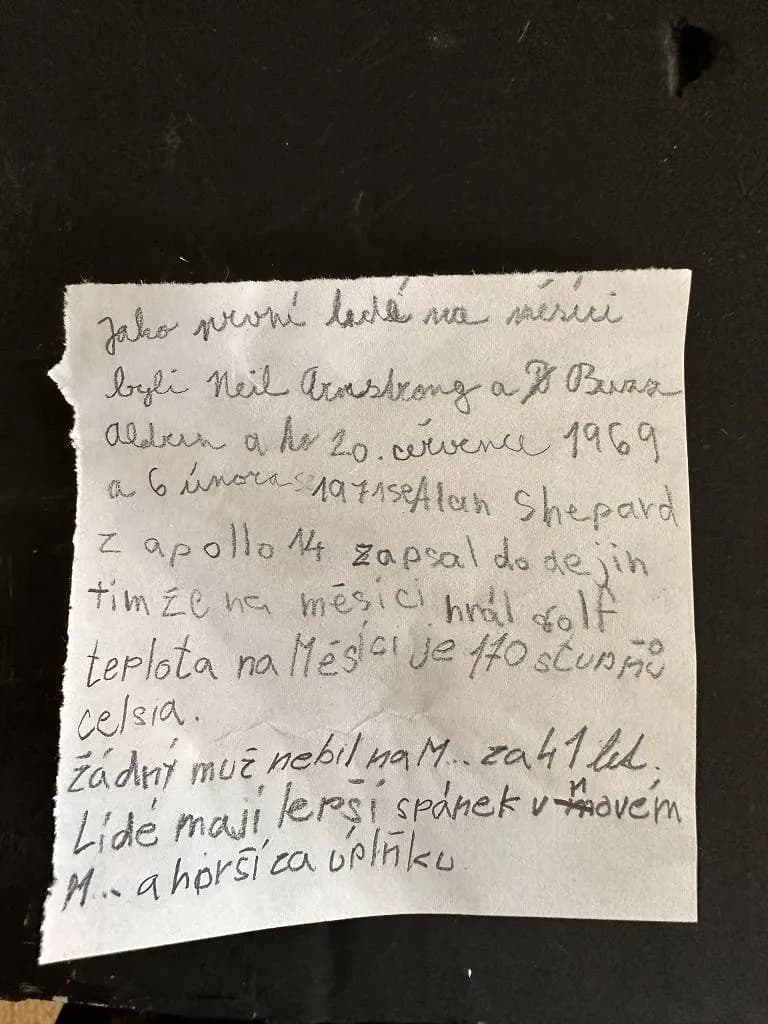 Jako první lidé na měsíci
byli Neil Armstrong a Buzz
Aldrin a to 20. července 1969
a 6 února 1971 se Alan Shepard
z apollo 14 zapsal do dejin
tím že na měsíci hrál golf
teplota na Měsíci je 170 stupňů
celsia.
žádný muž nebil na M... za 41 let.
Lidé mají lepší spánek v novém
M... a horší za úplňku